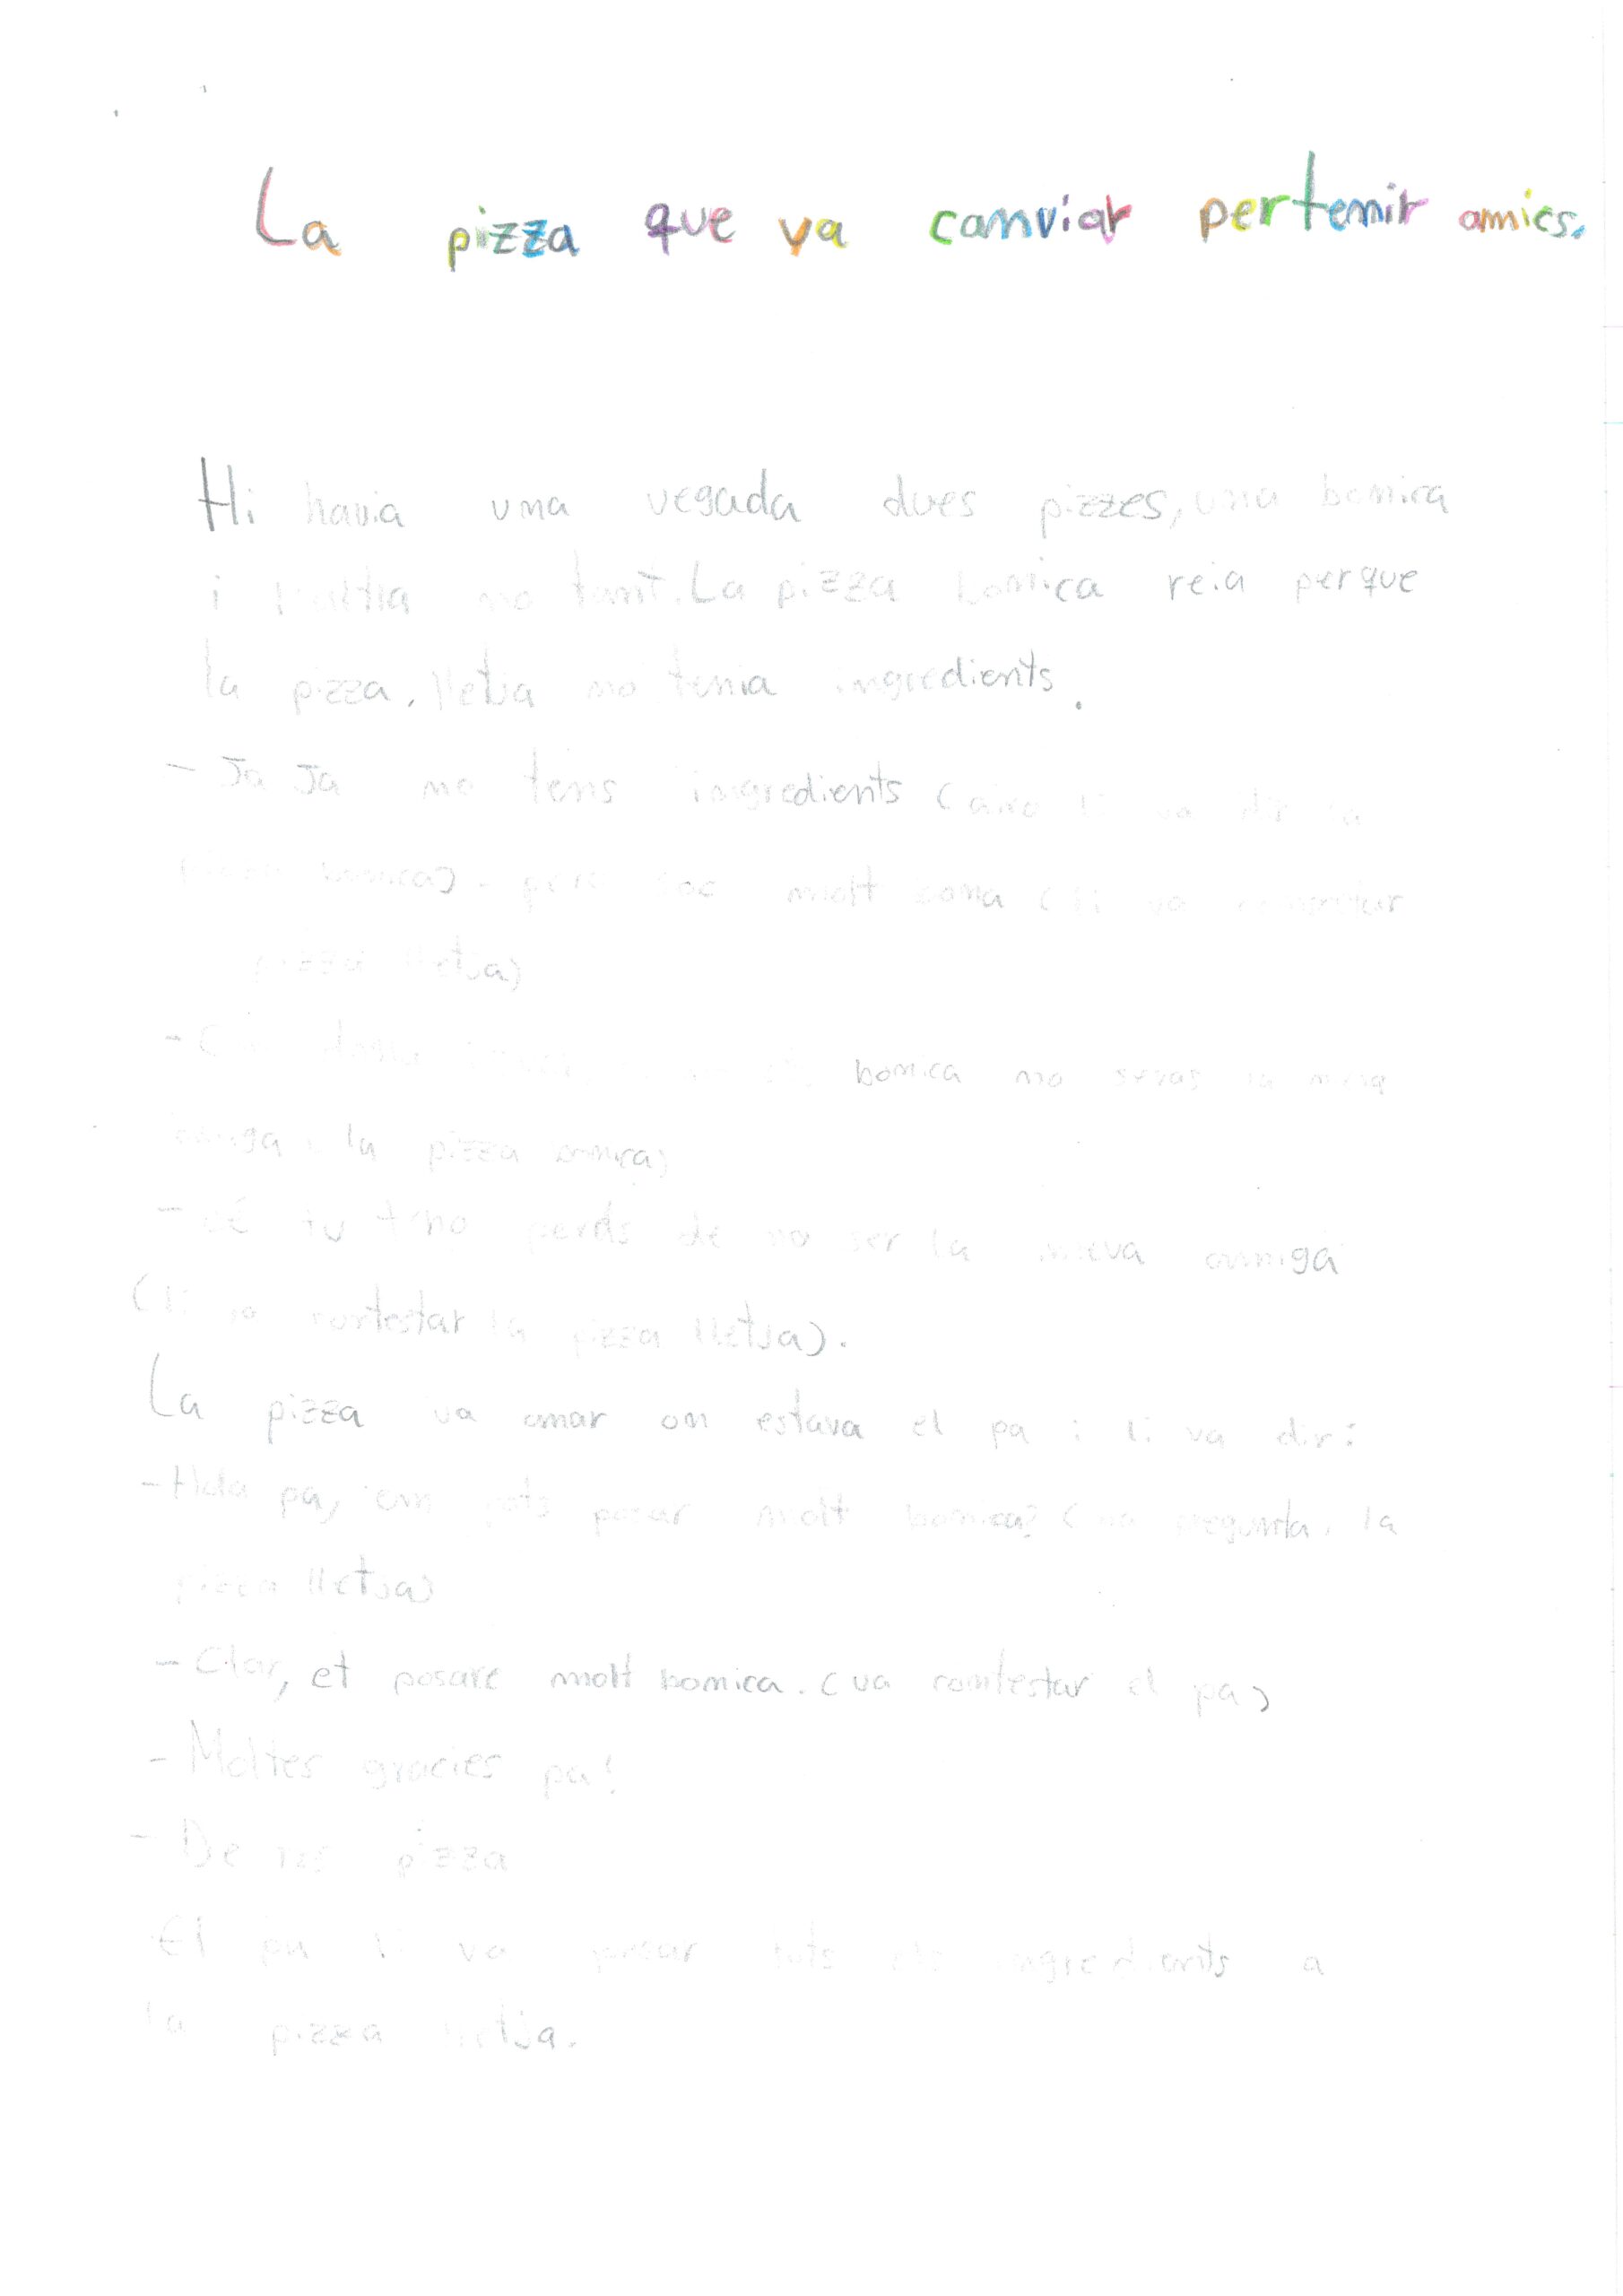 La pizza que va canviar pertenir amics.
Hi havia una vegada dues pizzes, una bonica
i l'altra no tant. La pizza bonica reia perque
la pizza, lletja no tenia ingredients.
- Ja Ja no tens ingredients (aixo li va dir la
pizza bonica). pero soc molt bona (li va contestar
pizza lletja)
- bonica no seras la meva
amiga la pizza bonica)
- tu t'ho perds de no ser la meva amiga
(li va contestar la pizza lletja).
La pizza va anar on estava el pa i li va dir:
- Hola pa, em pots posar molt bonica? (va pregunta, la
pizza lletja)
- Clar, et posare molt bonica. (va contestar el pa)
- Moltes gracies pa!
- De res pizza
El pa li va posar tots els ingredients a
la pizza lletja.